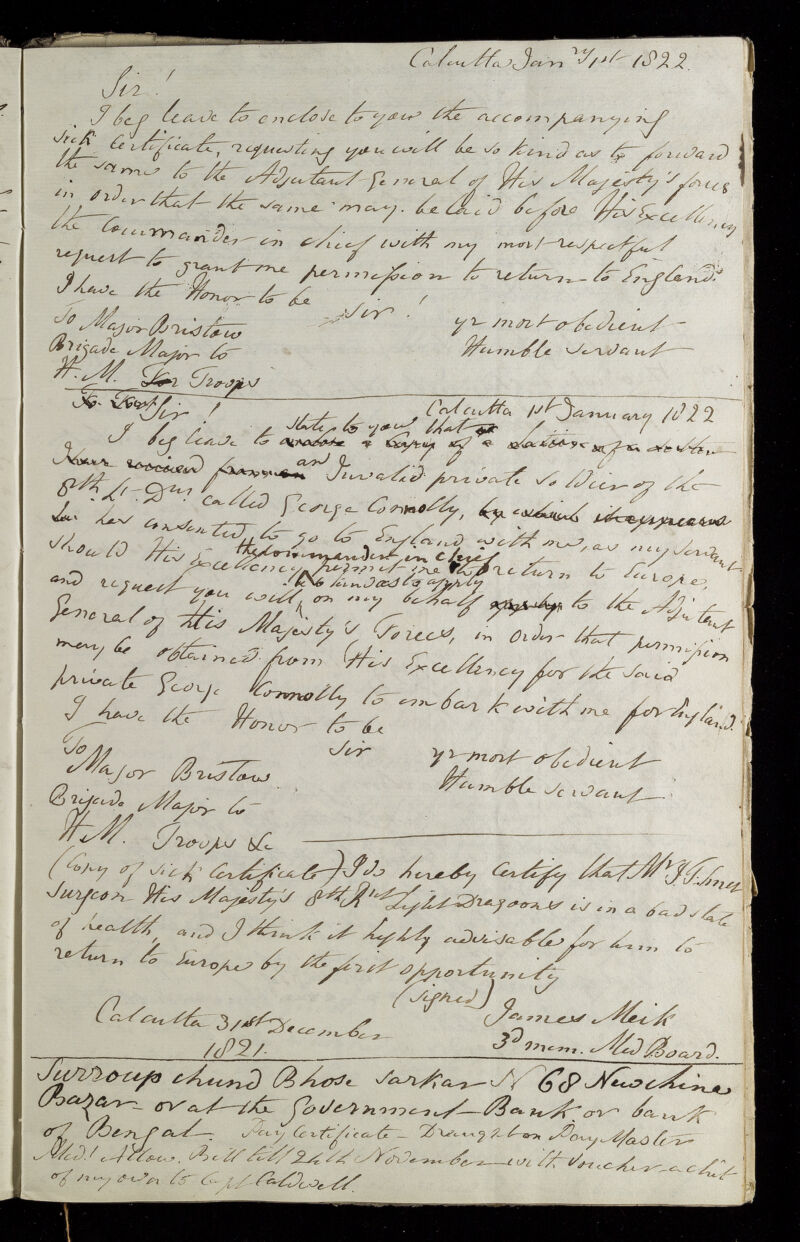 Calcutta Janry 1st 1822
Sir!
I beg leave to enclose to you the accompanying
sick certificate, requesting you will be so kind as to forward
the same to the Adjutant General of His Majesty's forces
in order that the same may be laid before His Excellency
the Commander in chief with my most respectful
request to grant me permission to return to England.
I have the Honor to be
Sir!
To Major Bristow
yr most obedient
Brigade Major to
Humble servant
H. M. For Troops
Calcutta 1st January 1822
Sir!
I beg leave to state to you that
an Invalid private soldier of the
8th Lt. Dns called George Connolly,
has consented to go to England with me, as my servant
should His Excellency the Commander in chief permit me to return to Europe,
and request you will be so kind as to apply on my behalf to the Adjutant
General of His Majesty's Forces, in order that permission
may be obtained from His Excellency for the said
private George Connolly to embark with me for England.
I have the Honor to be
Sir
To
yr most obedient
Major Bristow
Humble servant
Brigade Major to
H.M. Troops &c
(Copy of sick Certificate) I do hereby certify that Mr J. F. Smet
Surgeon His Majesty's 8th Rgt Light Dragoons is in a bad state
of health, and I think it highly advisable for him to
return to Europe by the first opportunity
(signed)
James Meik
Calcutta 31st December
1821.
3d mem. Med Board.
Surroup chund Bhose sarkar N 68 New china
Bazar or at the Government Bank or bank
of Bengal. Pay Certificate - Draught on Pay Master
Bill till 24th November with voucher a chit
of my own to Capt Caldwell.